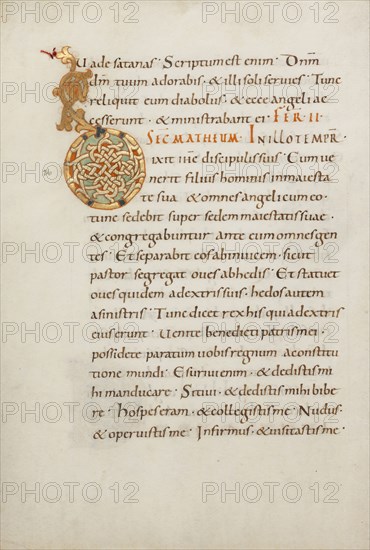 Vade satanas Scriptum est enim Dnm
dm tuum adorabis · & illi soli servies Tunc
reliquit eum diabolus · & ecce angeli ac
cesserunt · & ministrabant ei · FER · II ·
SEC MATHEUM · IN ILLO TEMPR ·
Dixit ihc discipulis suis Cum ve
nerit filius hominis in maiesta
te sua · & omnes angeli cum eo ·
tunc sedebit super sedem maiestatis suae ·
& congregabuntur ante eum omnes gen
tes Et separabit eos ab invicem · sicut
pastor segregat oves ab hedis Et statuet
oves quidem a dextris suis · hedos autem
a sinistris Tunc dicet rex his qui a dextris
eius erunt · Venite benedicti patris mei ·
possidete paratum vobis regnum a constitu
tione mundi · Esurivi enim · & dedistis mi
hi manducare · Sitivi · & dedistis mihi bibe
re · Hospes eram · & collegistis me Nudus ·
& operuistis me Infirmus · & visitastis me ·
PHOTO 12